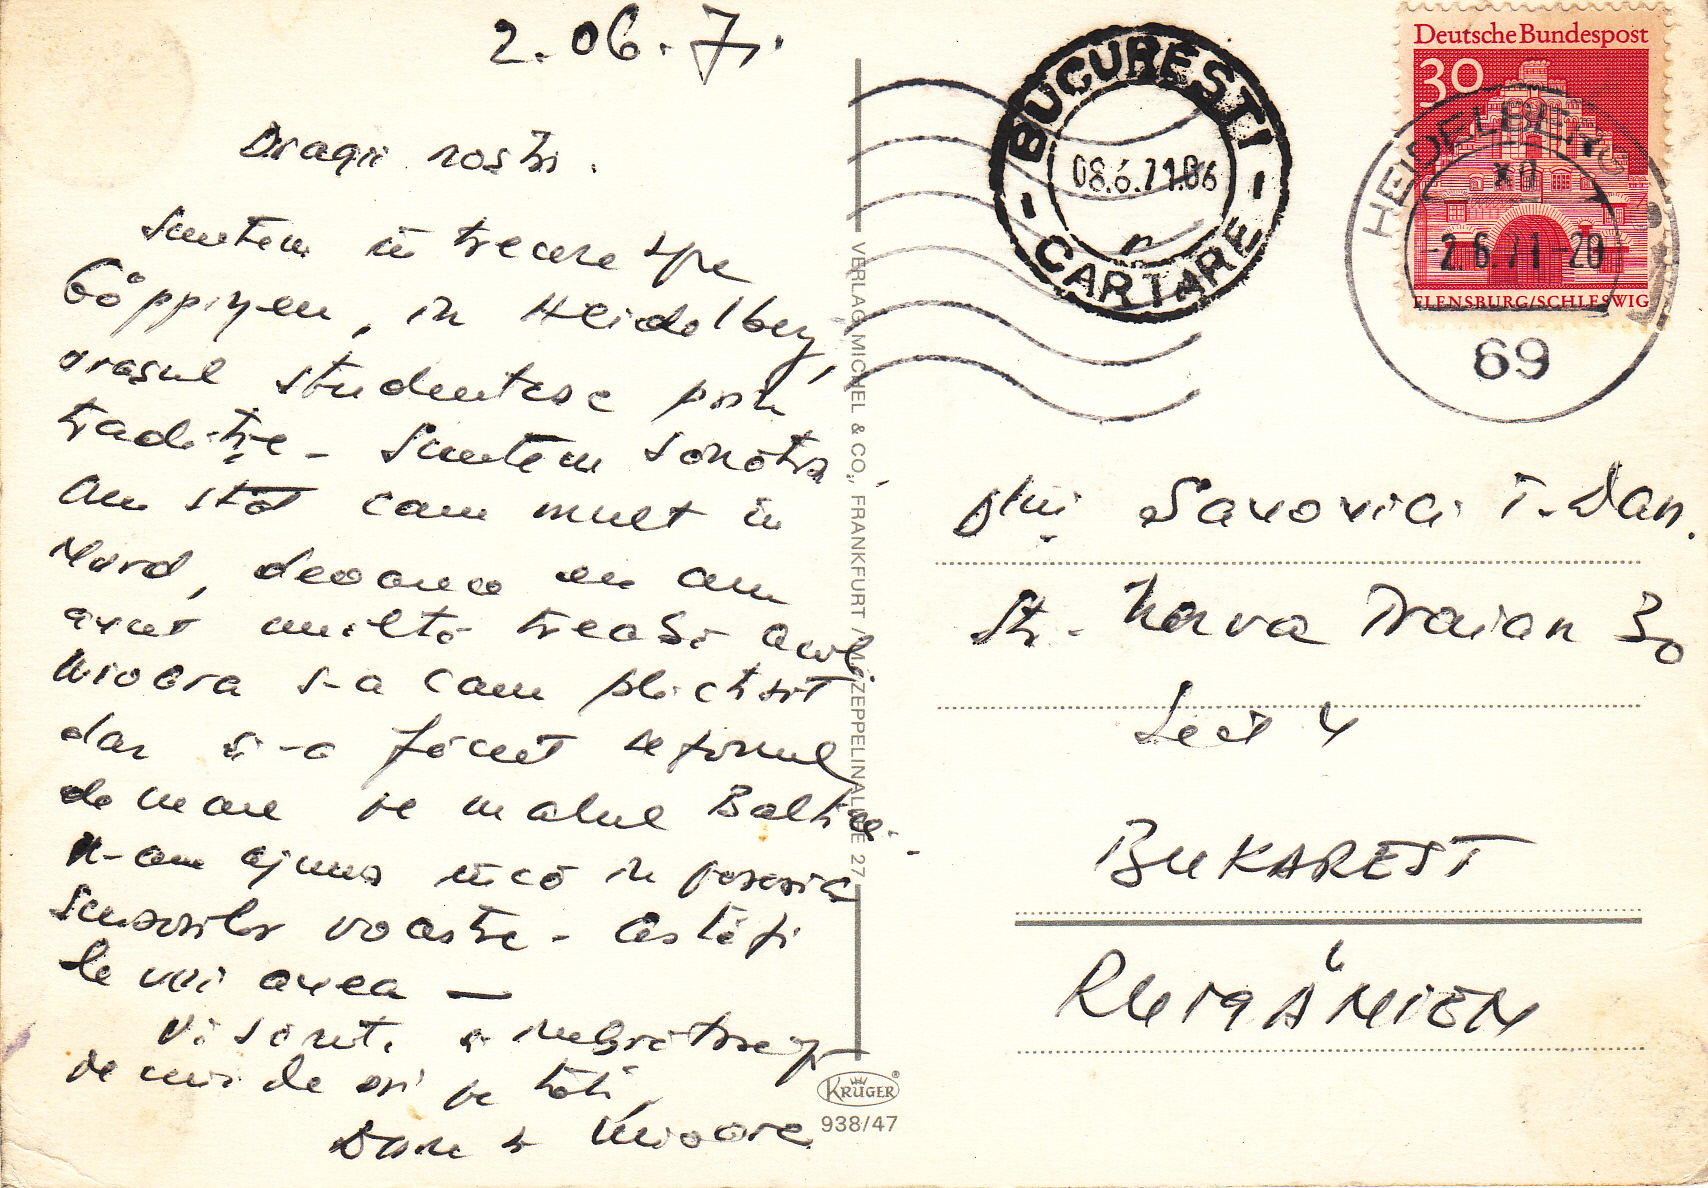 2.06.71.
Dragii noștri.
Suntem în trecere spre
Göppingen, in Heidelberg,
orașul studentesc prin
tradiție - Suntem sănătoși.
Am stat cam mult în
Nord, deoarece eu am
avut multă treabă acolo
Mioara s-a cam plictisit
dar și-a făcut
de mare pe malul Balticei.
N-am ajuns încă in posesia
voastre - Astăzi
le voi avea —
Vă sărută și îmbrățișează
de mii de ori pe toți,
Dan + Mioara
VERLAG MICHEL & CO., FRANKFURT / M. ZEPPELINALLEE 27
KRÜGER ®
938/47
BUCUREȘTI
08.6.71.06
CARTARE
Deutsche Bundespost
30
FLENSBURG/SCHLESWIG
HEIDELBERG
2.6.71-20
69
Savovici T. Dan.
Str. Traian 30
Sect 4
BUKAREST
RUMÄNIEN